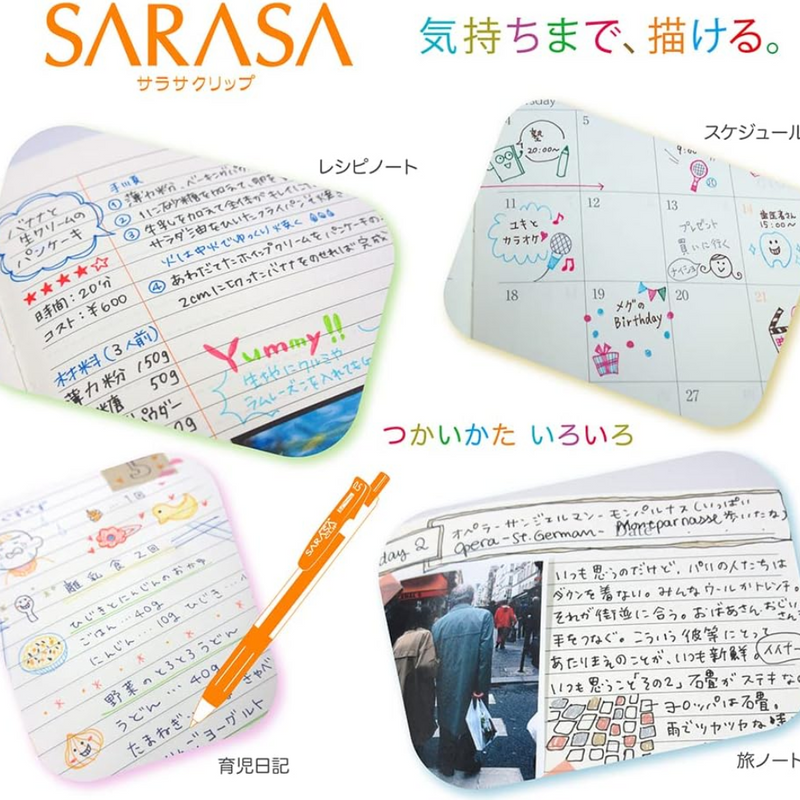 SARASA
サラサクリップ
気持ちまで、描ける。
レシピノート
バナナと
生クリームの
パンケーキ
時間：20分
コスト：¥600
材料(3人前)
薄力粉 150g
糖 50g
パウダー
手順
① 薄力粉、ベーキングパウ
② 1に砂糖を加えて
③ 牛乳を加えて全体がキレイに
サラダ油をひいたフライパン
火は中火でゆっくり焼く
④ あわだてたホイップクリームをパンケーキの
2cmに切ったバナナをのせれば完成
Yummy!!
生地にクルミや
ラムレーズンを入れても
スケジュール
4
5
塾
20:00~
11
12
13
ユキと
カラオケ
プレゼント
買いに行く
14
歯医者さん
15:00~
18
19
20
21
メグの
Birthday
27
つかいかた いろいろ
5
1回
離乳食2回
ひじきとにんじんのおかゆ
ごはん…40g
にんじん…10g ひじき…
野菜のとろとろうどん
うどん…40g
たまねぎ
ヨーグルト
SARASA
育児日記
day 2
オペラーサンジェルマンーモンパルナス(いっぱい
歩いたな)
Opera-St.German-Montparnasse
いつも思うのだけど、パリの人たちは
ダウンを着ない。みんなウールかトレンチ。
それが街並に合う。おばあさんおじいさん
手をつなぐ。こういう彼等にとって
あたりまえのことが、いつも新鮮。
いつも思うこと「その2」石畳がステキなの
ヨーロッパは石畳。
雨でツヤツヤな様
旅ノート